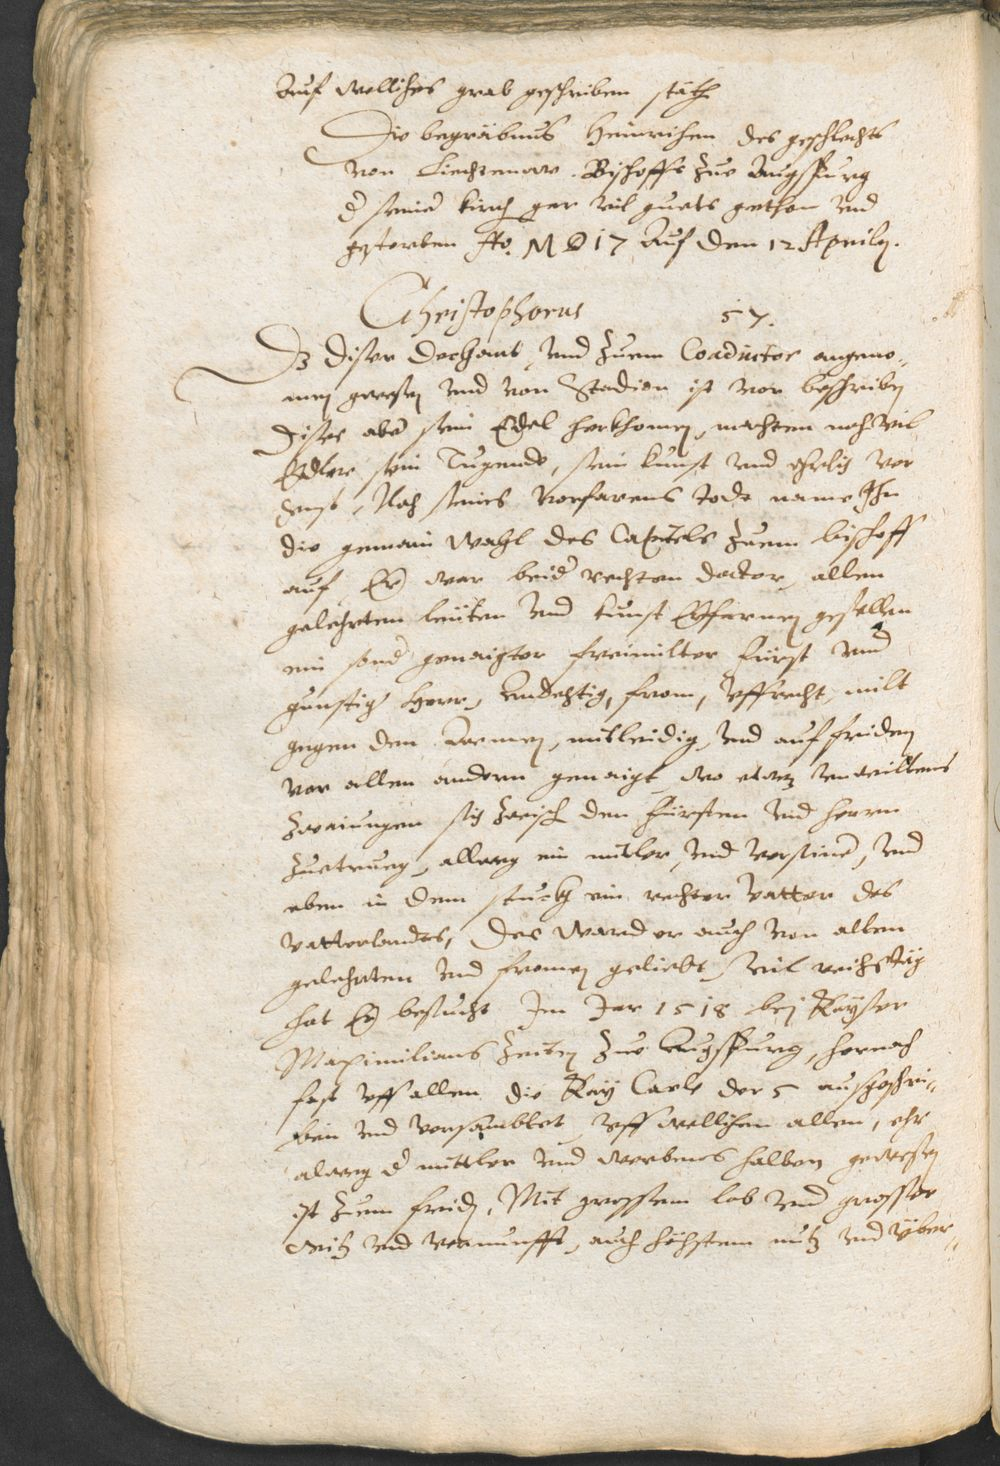 Auf welliches grab geschriben stath
Die begräbnus Heinrichen des geschlechts
von Liechtenaw. Bischoffs zue Augspurg
d seine kirch ger vil guets gethon vnd
gestorben Ao. M D 17 Auf den 12 Aprilis.
Christophorus 57.
Dz diser dechant, vnd zuem Coadiutor angeno¬
men gewesen vnd von Stadion ist vor beschriben
Diser abe sein Edel herkhomen, machten noch vil
Edler sein Tugende, sein kunst vnd ehrlich ver
dienst, Nach seines vorfarens tode name Ihn
die gemain wahl des Capitels zuem bischoff
auf, Er war beid rechten doctor, allen
gelehrten leuten vnd kunst Erfarnen gesellen
ein sond genaigter freimilter fürst vnd
gunstig Herr, Andechtig, from, uffrecht, milt
gegen den Armen, mitleidig, vnd auf friden
vor allen andern genaigt, wo etwz vnwillens
zwaiungen sich zwisch den fürsten vnd herrn
zuetrueg, allweg ein mitler, vnd versüner, vnd
eben in dem stuckh ein rechter vatter des
vatterlandes, Des ward er auch von allen
gelehrten vnd fromen geliebt, vil reichstäg
hat Er besucht Im Jar 1518 bej Kayser
Maximilians zeiten zue Augspurg, hernach
fast uff allen die Kay Carle der 5 ausgeschri¬
ben vnd versamblet, uff wellichen allen, ehr
alweg d mittler vnd werbens halben gewesen
ist zum friden, Mit grossem lob vnd grosser
witz vnd vernunfft, auch höchstem nutz vnd über¬